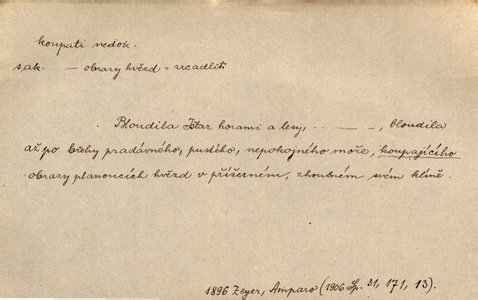 koupati nedok.
s ak. — obrazy hvězd = zrcadliti
Bloudila Ištar horami a lesy, . — — —, bloudila
až po břehy pradávného, pustého, nepokojného moře, koupajícího
obrazy planoucích hvězd v příšerném, zhoubném svém klíně.
1896 Zeyer, Amparo (1906 Sp. 31, 171, 13).